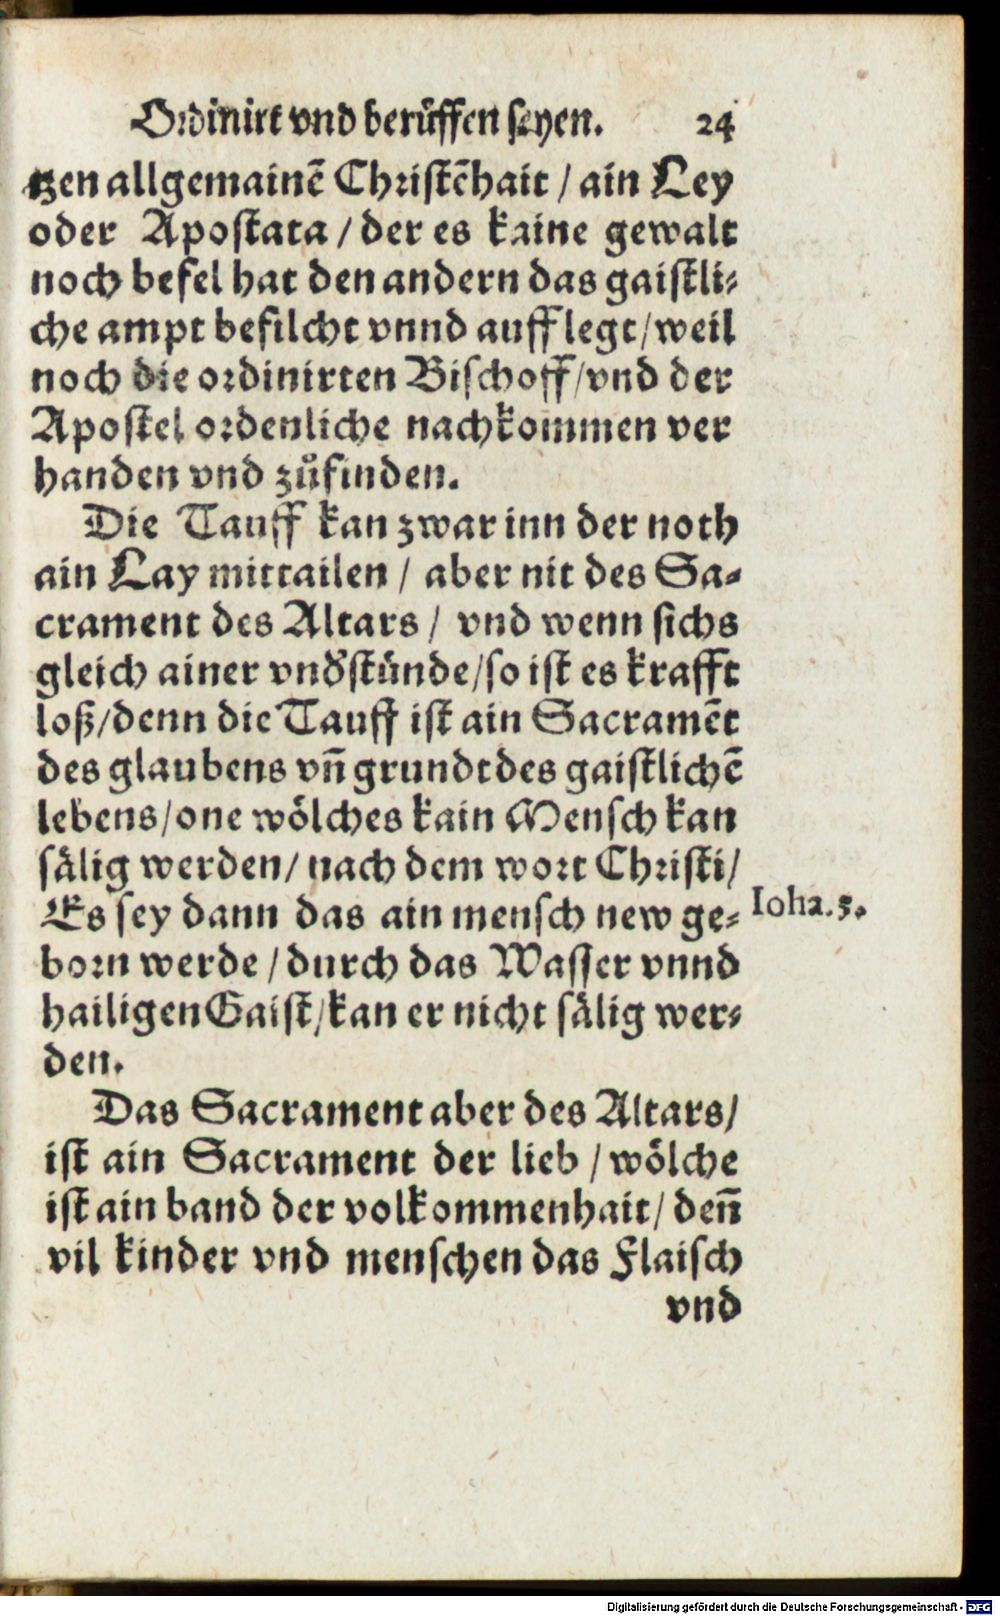 Ordinirt vnd berůffen seyen. 24
tzen allgemainē Christēhait / ain Ley
oder Apostata / der es kaine gewalt
noch befel hat den andern das gaistli⸗
che ampt befilcht vnnd aufflegt / weil
noch die ordinirten Bischoff / vnd der
Apostel ordenliche nachkommen ver
handen vnd zůfinden.
Die Tauff kan zwar inn der noth
ain Lay mittailen / aber nit des Sa⸗
crament des Altars / vnd wenn sichs
gleich ainer vnd̕stünde / so ist es krafft
loß / denn die Tauff ist ain Sacramēt
des glaubens vn̄ grundt des gaistlichē
lebens / one wölches kain Mensch kan
sälig werden / nach dem wort Christi /
Es sey dann das ain mensch new ge⸗
born werde / durch das Wasser vnnd
hailigen Gaist / kan er nicht sälig wer⸗
den.
Ioha. 3.
Das Sacrament aber des Altars /
ist ain Sacrament der lieb / wölche
ist ain band der volkommenhait / den̄
vil kinder vnd menschen das Flaisch
vnd
Digitalisierung gefördert durch die Deutsche Forschungsgemeinschaft - DFG